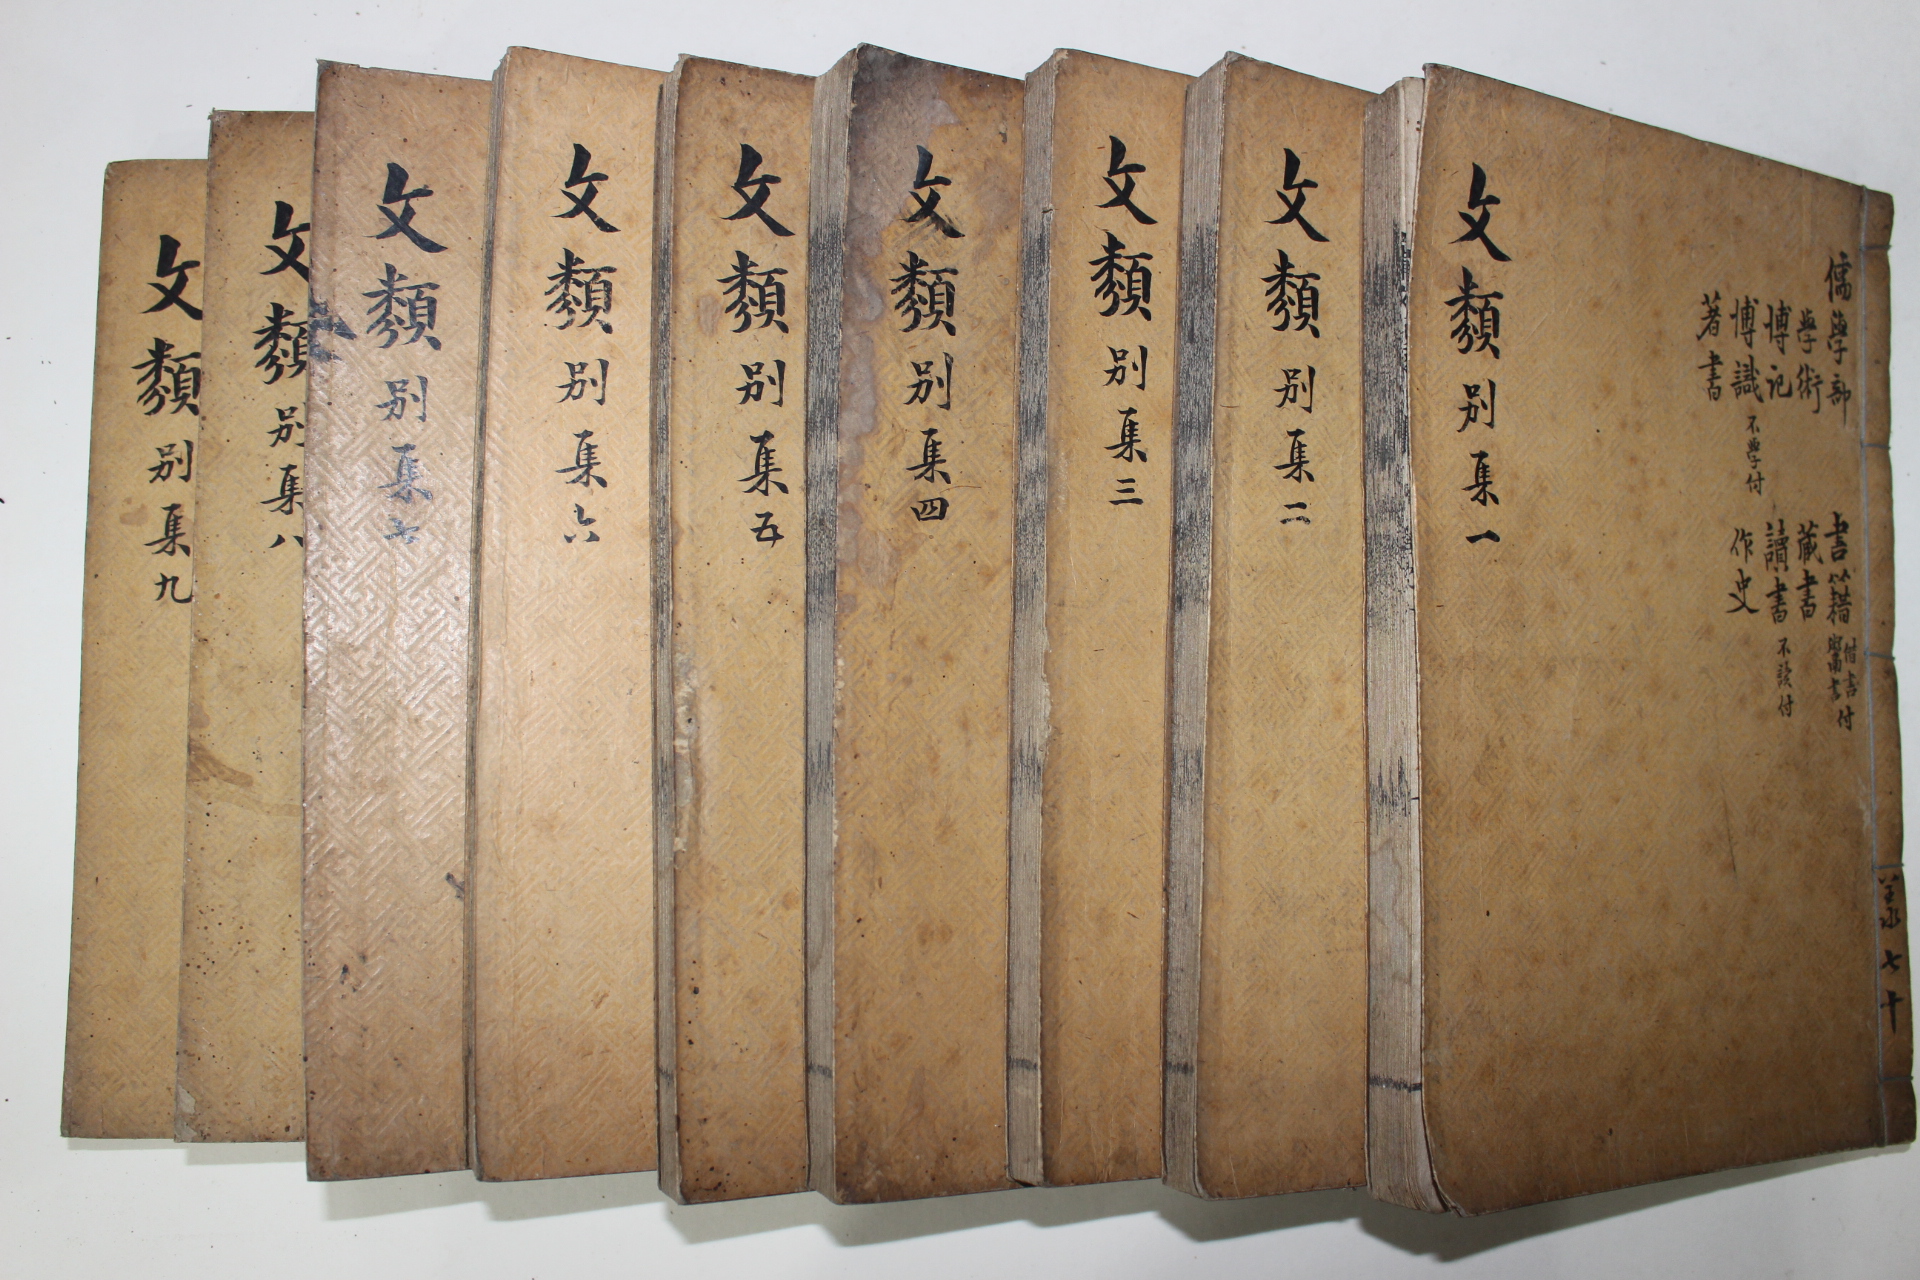 文類別集一
儒學部
學術
博記
博識 不學付
著書
書籍 借書付 鬻書付
藏書
讀書 不讀付
作史
共七十
文類別集二
文類別集三
文類別集四
文類別集五
文類別集六
文類別集七
文類別集八
文類別集九